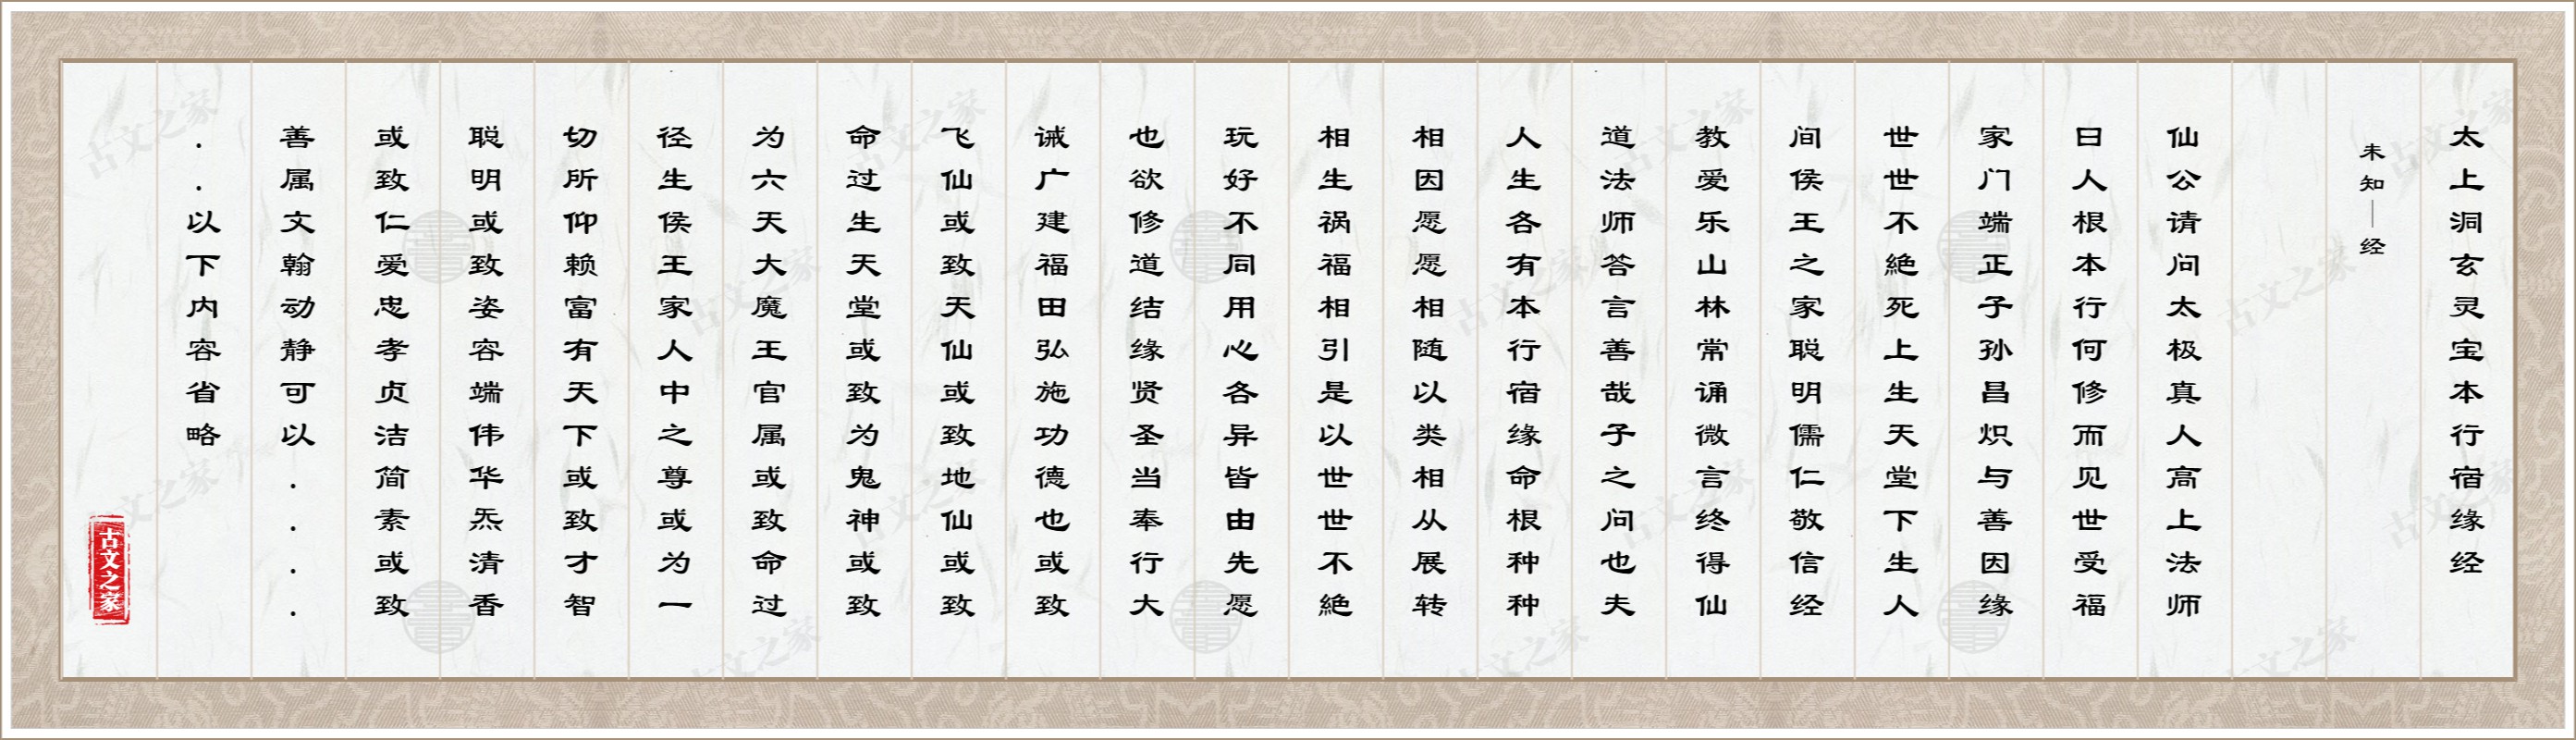 太上洞玄灵宝本行宿缘经
未知｜经
仙公请问太极真人高上法师
曰人根本行何修而见世受福
家门端正子孙昌炽与善因缘
世世不絶死上生天堂下生人
间侯王之家聪明儒仁敬信经
教爱乐山林常诵微言终得仙
道法师答言善哉子之问也夫
人生各有本行宿缘命根种种
相因愿愿相随以类相从展转
相生祸福相引是以世世不絶
玩好不同用心各异皆由先愿
也欲修道结缘贤圣当奉行大
诫广建福田弘施功德也或致
飞仙或致天仙或致地仙或致
命过生天堂或致为鬼神或致
为六天大魔王官属或致命过
径生侯王家人中之尊或为一
切所仰赖富有天下或致才智
聪明或致姿容端伟华炁清香
或致仁爱忠孝贞洁简素或致
善属文翰动静可以....
..以下内容省略
古文之家